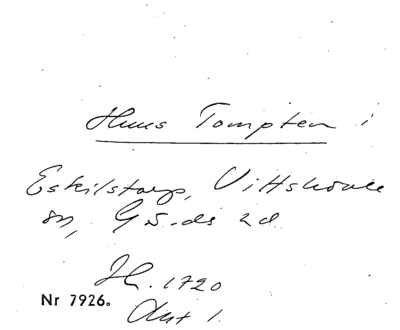 Huus Tompten i
Eskilstorp, Vittskövle
sn, Gärds hd
Jb. 1720
Nr 7926.
Ant 1.